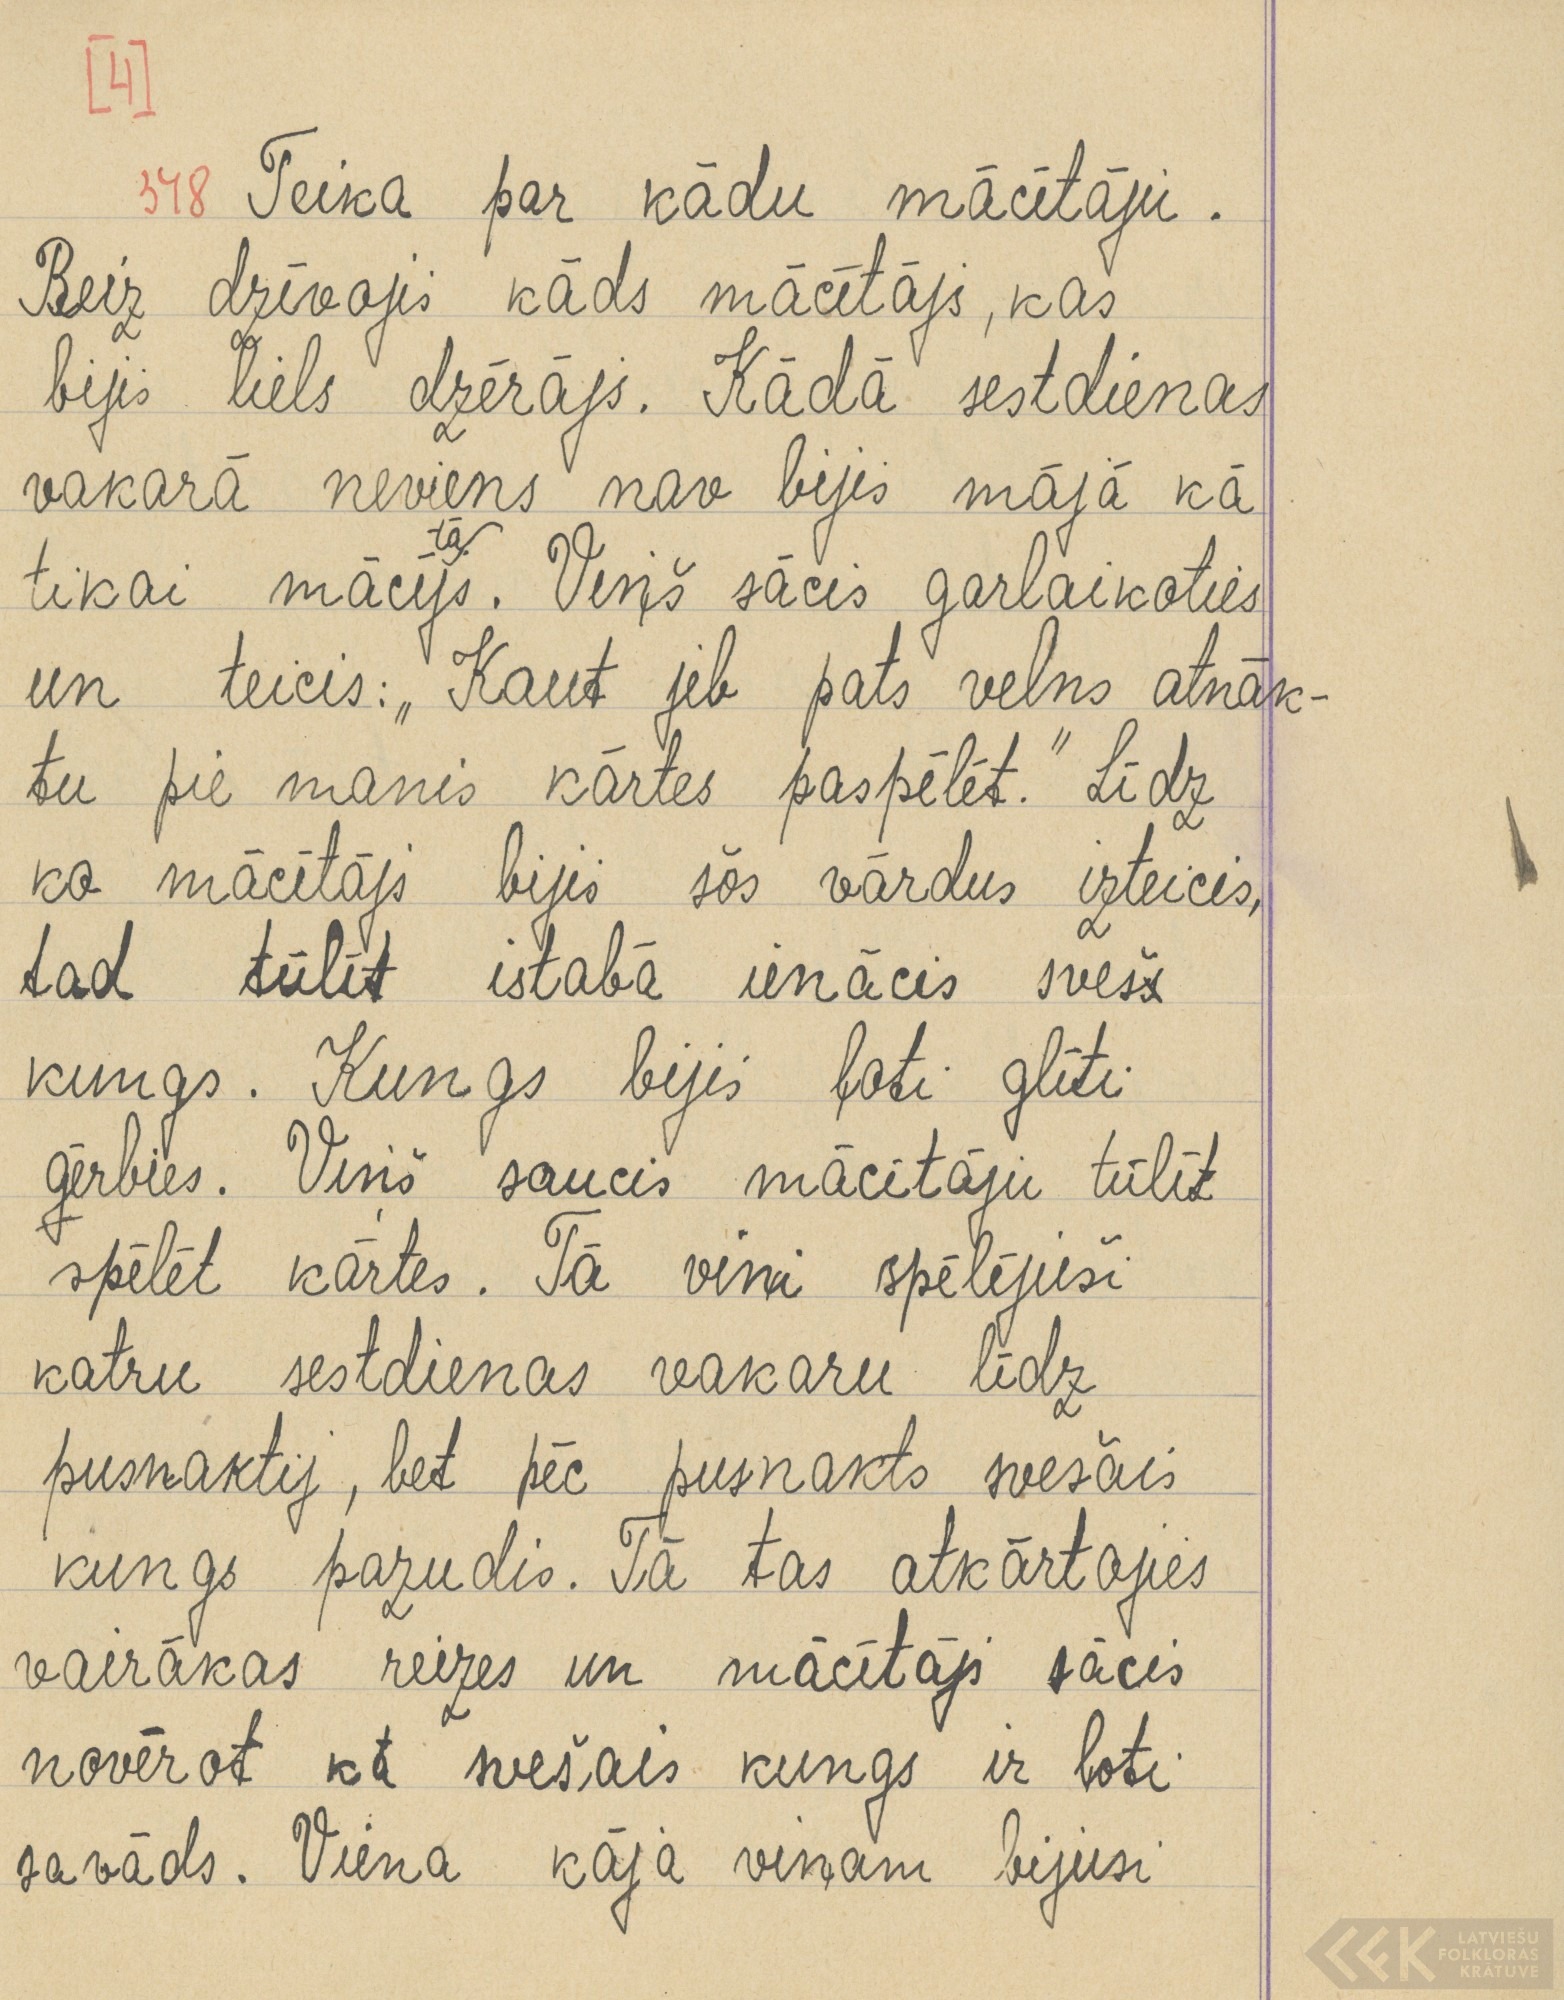 [4]
378 Teika par kādu mācītāju.
Reiz dzīvojis kāds mācītājs, kas
bijis liels dzērājs. Kādā sestdienas
vakarā neviens nav bijis mājā kā
tikai mācītājs. Viņš sācis garlaikoties
un teicis: „Kaut jeb pats velns atnāk-
tu pie manis kārtes paspēlēt." Līdz
ko mācītājs bijis šos vārdus izteicis,
tad tūlīt istabā ienācis svešs
kungs. Kungs bijis ļoti glīti
ģērbies. Viņš saucis mācītāju tūlīt
spēlēt kārtes. Tā viņi spēlējuši
katru sestdienas vakaru līdz
pusnaktij, bet pēc pusnakts svešais
kungs pazudis. Tā tas atkārtojies
vairākas reizes un mācītājs sācis
novērot ka svešais kungs ir ļoti
savāds. Viena kāja viņam bijusi
LATVIEŠU
FOLKLORAS
KRĀTUVE